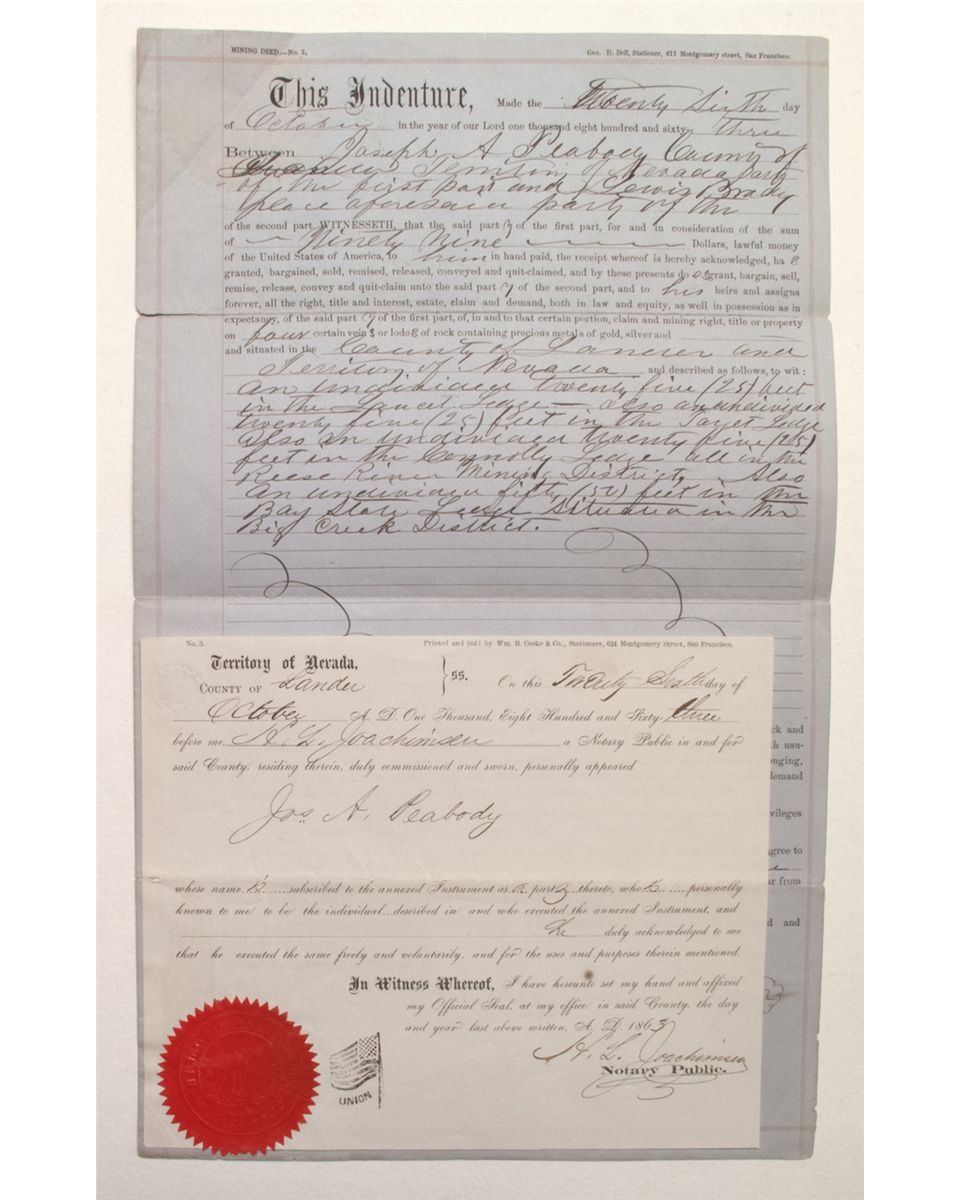 MINING DEED.—No. 3.
Geo. H. Bell, Stationer, 611 Montgomery street, San Francisco.
This Indenture, Made the Twenty Sixth day
of October in the year of our Lord one thousand eight hundred and sixty three
Between Joseph A Peabody County of
Territory of Nevada party
of the first part and Lewis Brady
place aforesaid party of the
of the second part WITNESSETH, that the said party of the first part, for and in consideration of the sum
of Ninety Nine Dollars, lawful money
of the United States of America, to him in hand paid, the receipt whereof is hereby acknowledged, ha s
granted, bargained, sold, remised, released, conveyed and quit-claimed, and by these presents do es grant, bargain, sell,
remise, release, convey and quit-claim unto the said party of the second part, and to his heirs and assigns
forever, all the right, title and interest, estate, claim and demand, both in law and equity, as well in possession as in
expectancy, of the said party of the first part, of, in and to that certain portion, claim and mining right, title or property
on four certain veins or lodes of rock containing precious metals of gold, silver and
and situated in the County of Lander and
Territory of Nevada and described as follows, to wit:
an undivided twenty five (25) feet
in the Lancet Ledge — also an undivided
twenty five (25) feet in the Ledge
also an undivided twenty five (25)
feet in the Connolly Ledge all in the
Reese River Mining District, Also
an undivided fifty (50) feet in the
Bay State Ledge Situated in the
Big Creek District.
No. 3.
Printed and Sold by Wm. B. Cooke & Co., Stationers, 624 Montgomery Street, San Francisco.
Territory of Nevada,
COUNTY OF Lander } ss. On this Twenty Sixth day of
October A. D. One Thousand, Eight Hundred and Sixty three
before me, A. L. Joachimsen a Notary Public in and for
said County, residing therein, duly commissioned and sworn, personally appeared
Jos. A. Peabody
whose name is subscribed to the annexed Instrument as a party thereto, who is personally
known to me to be the individual described in and who executed the annexed Instrument, and
he duly acknowledged to me
that he executed the same freely and voluntarily, and for the uses and purposes therein mentioned.
In Witness Whereof, I have hereunto set my hand and affixed
my Official Seal, at my office in said County, the day
and year last above written, A. D. 1863
A. L. Joachimsen
Notary Public.
UNION
ck and
h usu-
onging,
demand
vileges
gree to
ar from
d and